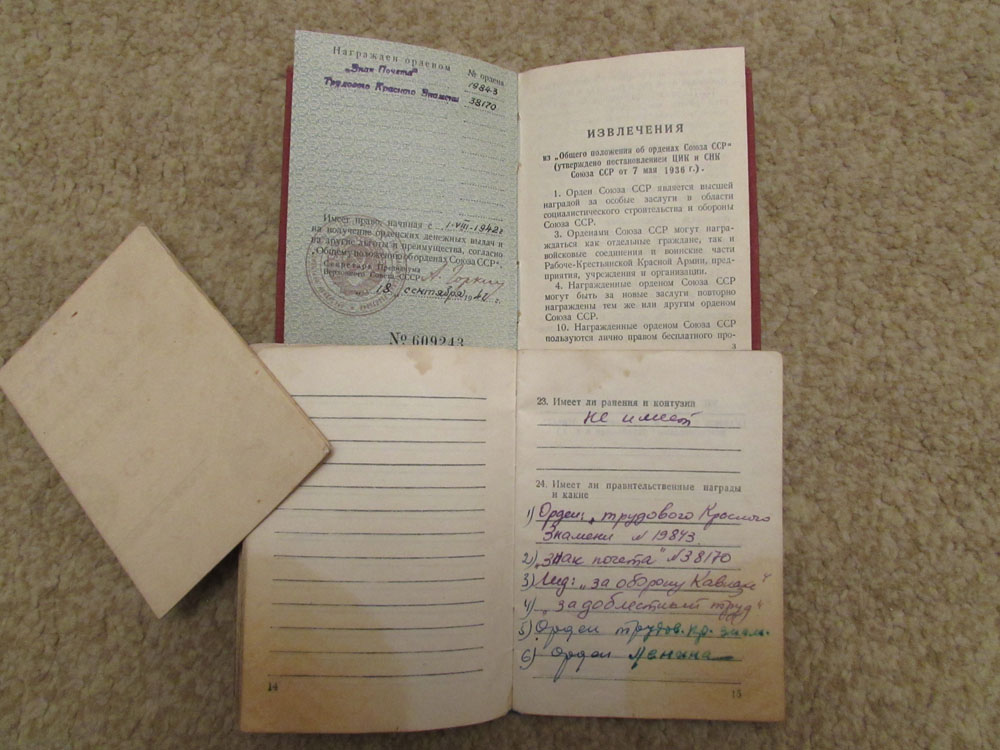 Награжден орденом № ордена
„Знак Почета“ 19843
Трудового Красного Знамени 38170
Имеет право, начиная с 1.VIII-1942 г
на получение орденских денежных выдач и
на другие льготы и преимущества, согласно
„Общему положению об орденах Союза ССР“.
Секретарь Президиума
Верховного Совета СССР А. Горкин
18 сентября 1942 г.
№ 609243
ИЗВЛЕЧЕНИЯ
из „Общего положения об орденах Союза ССР“
(утверждено постановлением ЦИК и СНК
Союза ССР от 7 мая 1936 г.).
1. Орден Союза ССР является высшей
наградой за особые заслуги в области
социалистического строительства и обороны
Союза ССР.
3. Орденами Союза ССР могут награ-
ждаться как отдельные граждане, так и
войсковые соединения и воинские части
Рабоче-Крестьянской Красной Армии, пред-
приятия, учреждения и организации.
4. Награжденные орденом Союза ССР
могут быть за новые заслуги повторно
награждены тем же или другим орденом
Союза ССР.
10. Награжденные орденом Союза ССР
пользуются лично правом бесплатного про-
3
14
23. Имеет ли ранения и контузии
не имеет
24. Имеет ли правительственные награды
и какие
1) Орден: „трудового Красного
Знамени N 19843
2) „Знак почета“ N 38170
3) Мед: „за оборону Кавказа“
4) „за доблестный труд“
5) Орден трудов. кр. знам.
6) Орден Ленина
15